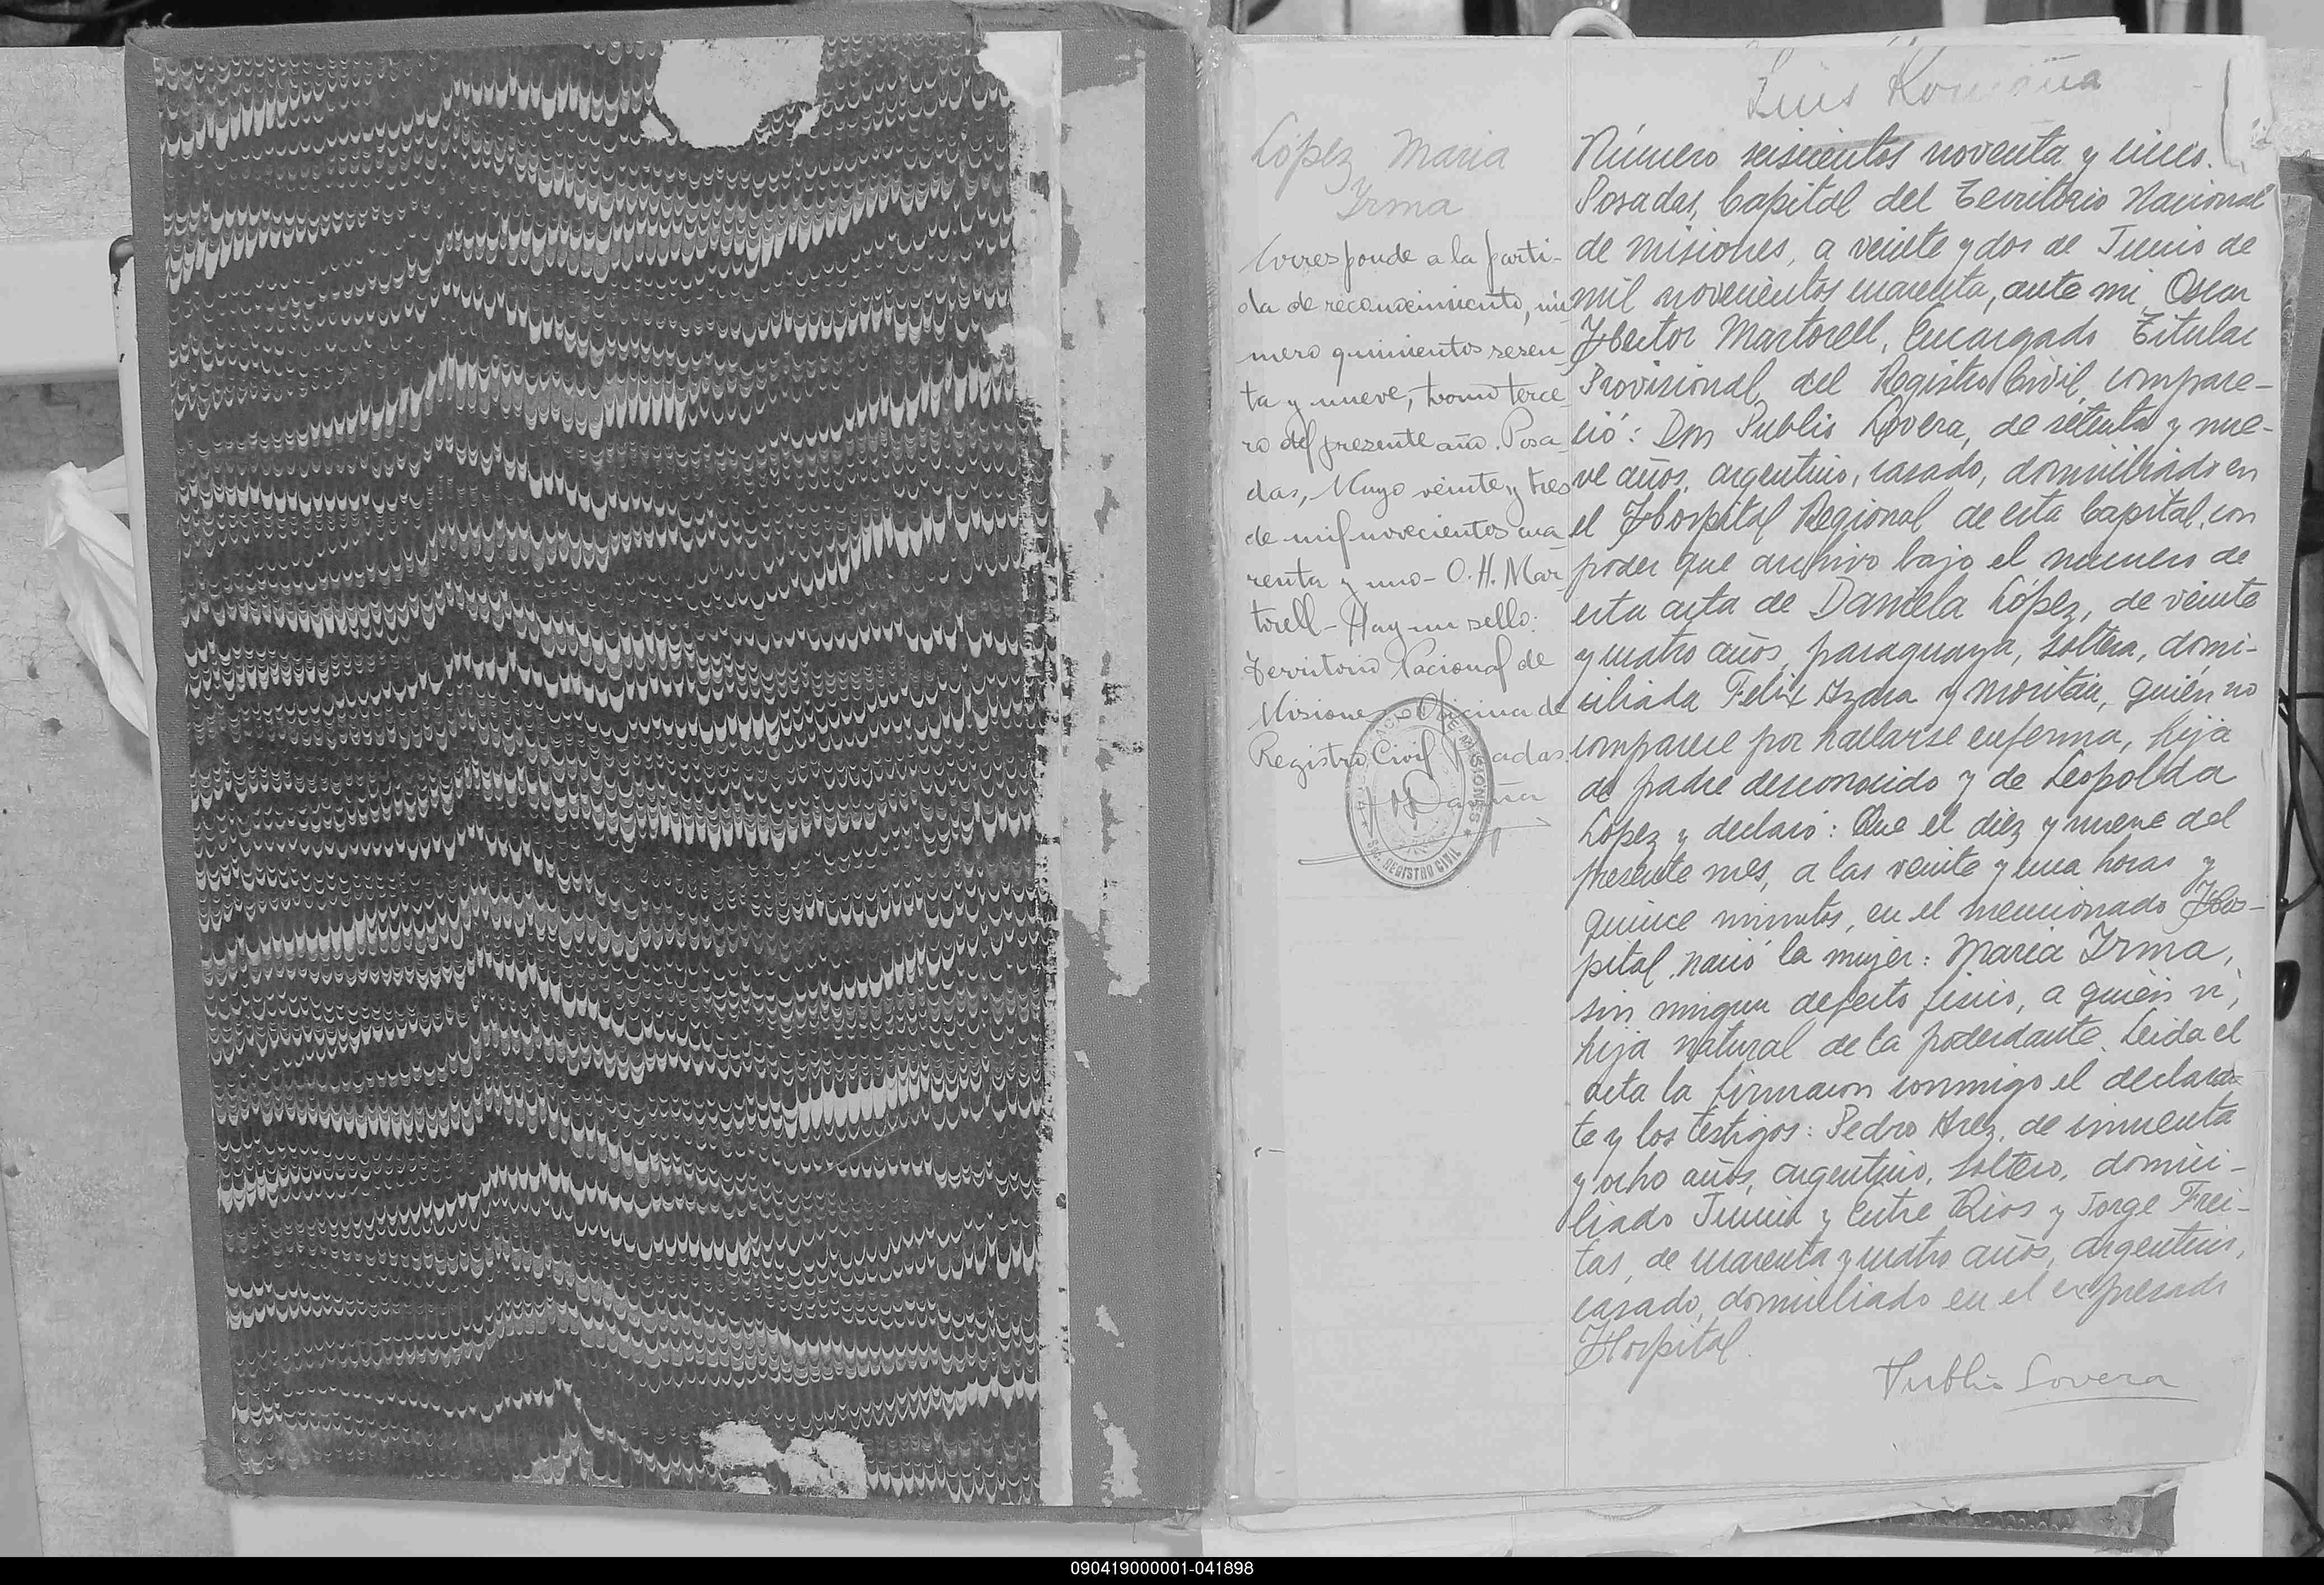 Luis
López Maria
Irma
Corresponde a la parti-
da de reconocimiento, nú
mero quinientos sesen
ta y nueve, tomo terce
ro del presente año. Posa
das, Mayo veinte y tres
de mil novecientos cua
renta y uno - O. H. Mar
torell - Hay un sello:
Territorio Nacional de
Misiones Oficina de
Registro Civil Posadas.
DE MISIONES
REGISTRO CIVIL
Número seiscientos noventa y cinco.
Posadas, Capital del Territorio Nacional
de Misiones, a veinte y dos de Junio de
mil novecientos cuarenta, ante mi, Oscar
Hector Martorell, Encargado Titular
Provisional, del Registro Civil, compare-
ció: Don Publio Lovera, de setenta y nue-
ve años, argentino, casado, domiciliado en
el Hospital Regional de esta Capital, con
poder que archivo bajo el numero de
esta acta de Daniela López, de veinte
y cuatro años, paraguaya, soltera, domi-
ciliada Felix Azara y Moritán, quién no
comparece por hallarse enferma, hija
de padre desconocido y de Leopolda
López y declaró: Que el diez y nueve del
presente mes, a las veinte y una horas y
quince minutos, en el mencionado Hos-
pital, nació la mujer: Maria Irma,
sin ningun defecto fisico, a quién vi,
hija natural de la poderdante. Leida el
acta la firmaron conmigo el declaran-
te y los testigos: Pedro Arez, de cincuenta
y ocho años, argentino, soltero, domici-
liado Junin y Entre Rios y Jorge Frei-
tas, de cuarenta y cuatro años, argentino,
casado, domiciliado en el expresado
Hospital.
Publio Lovera
090419000001-041898